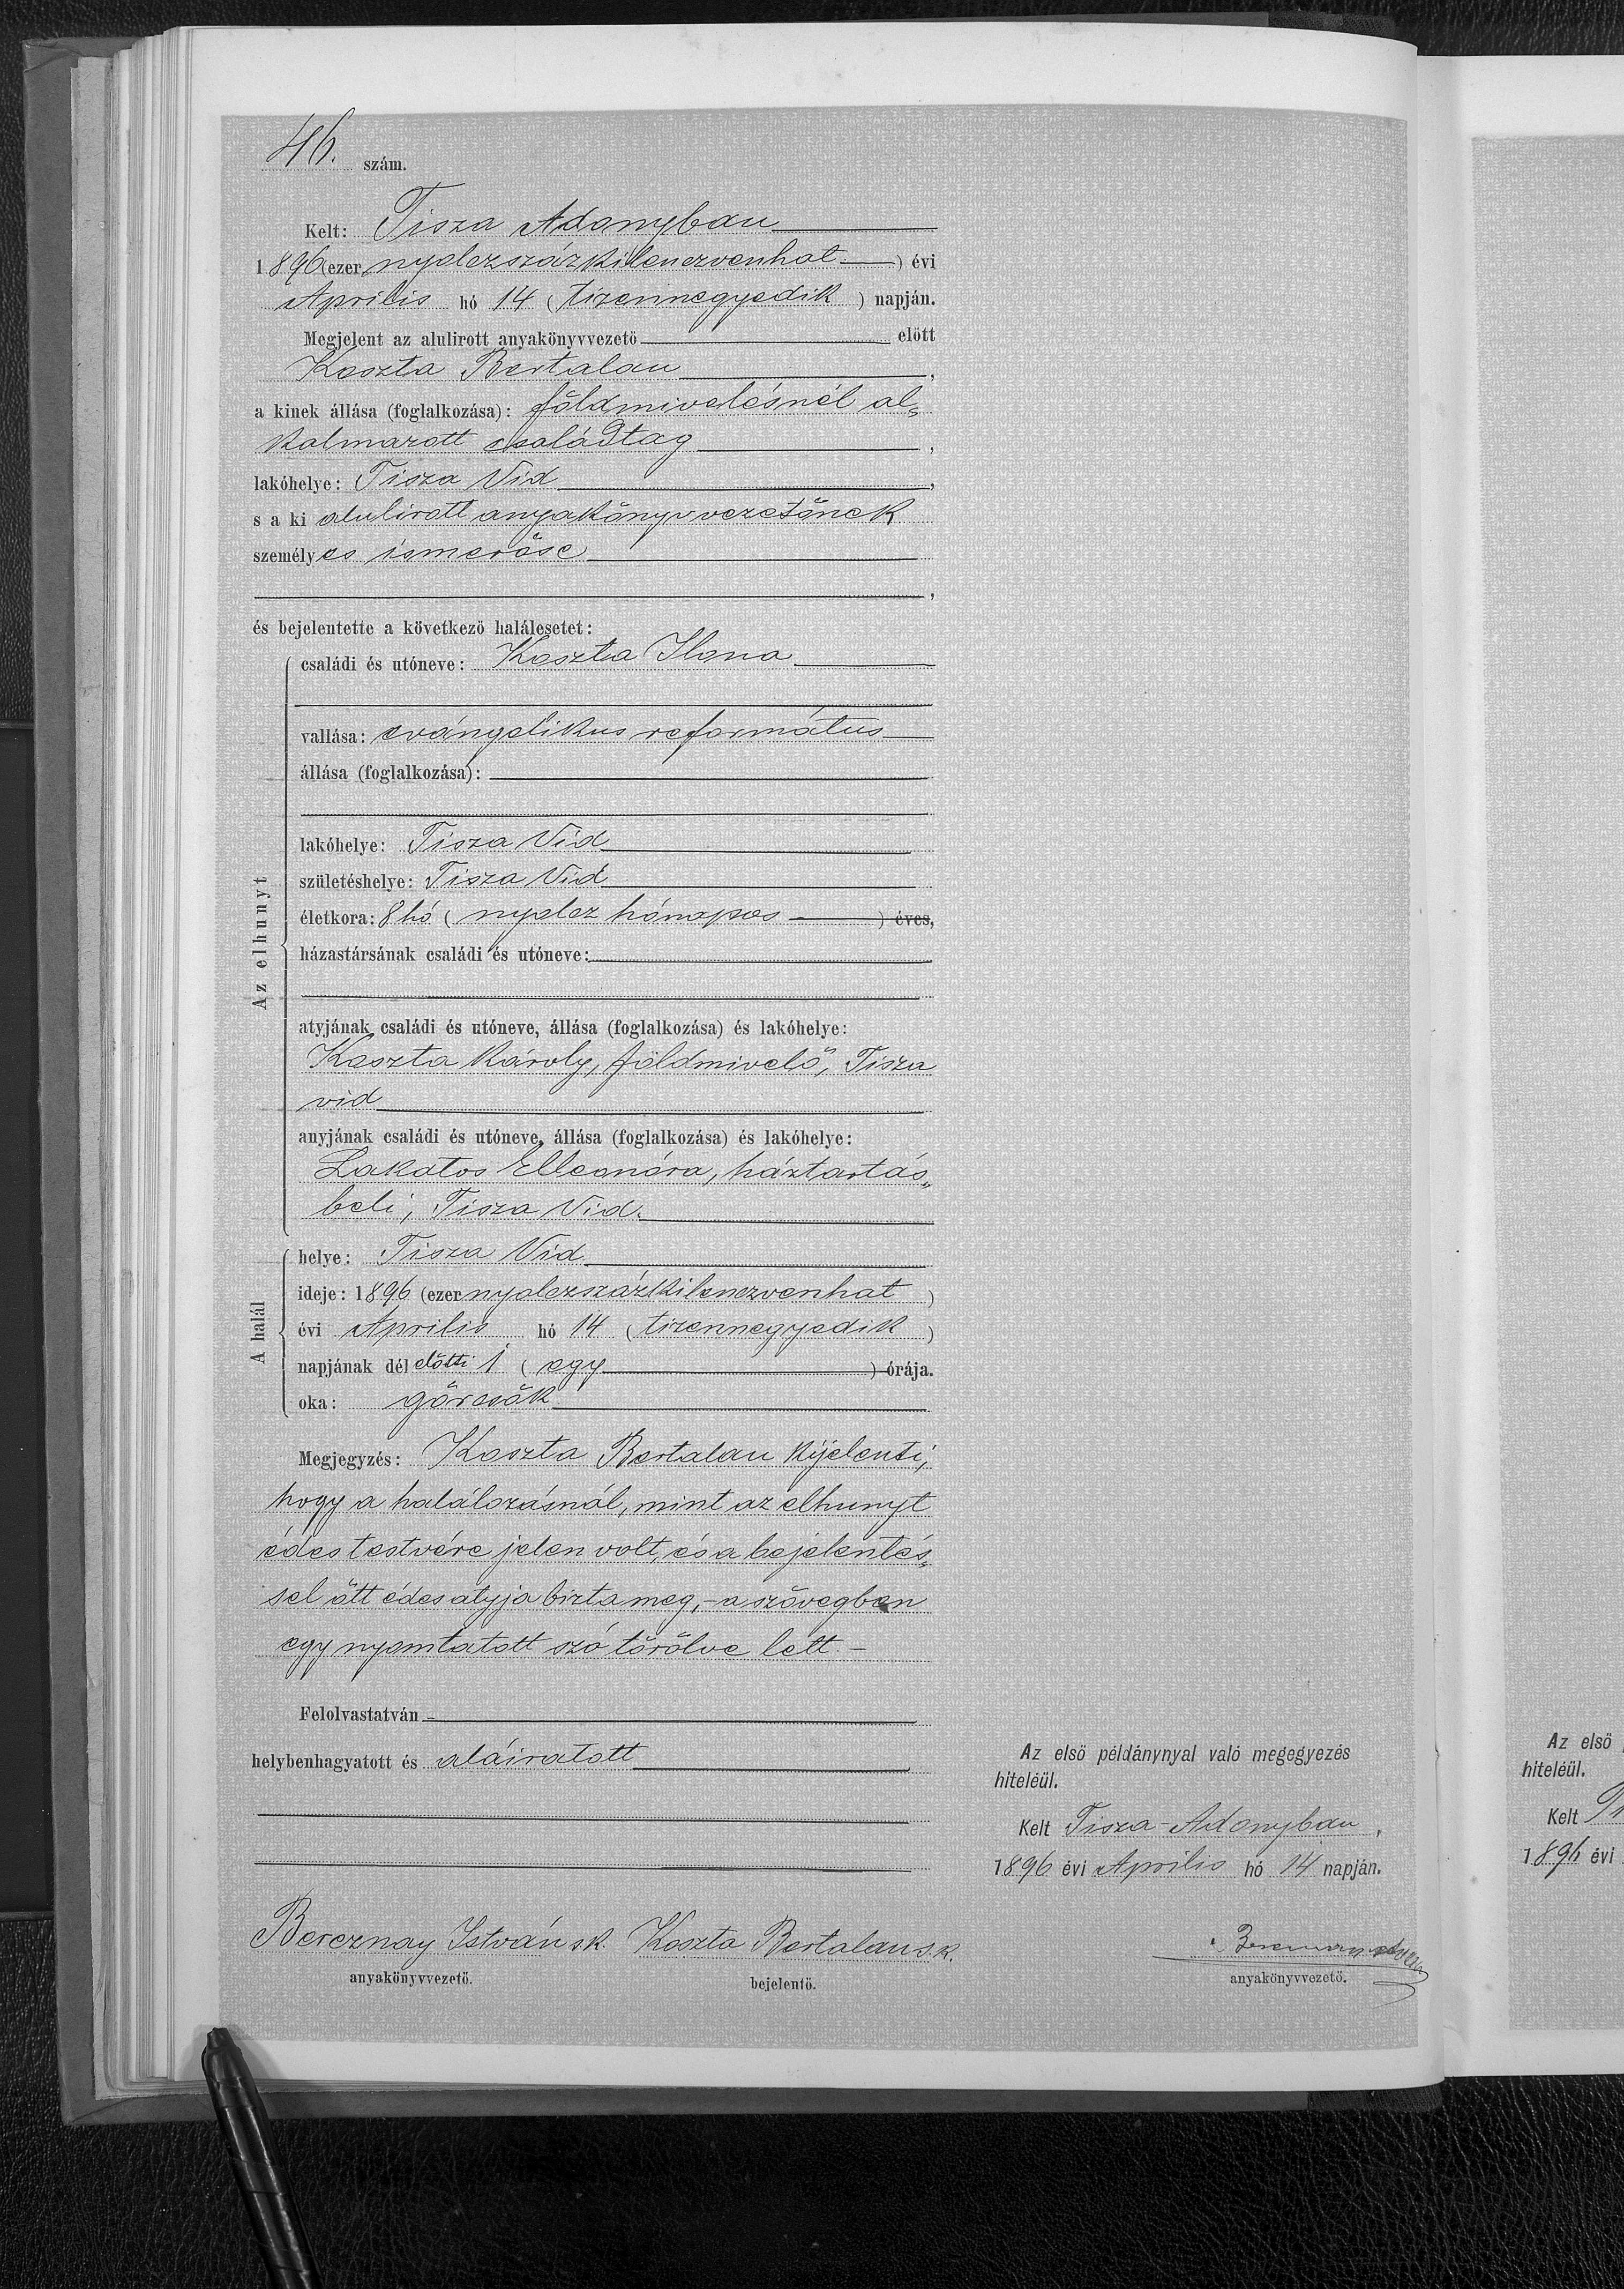 46. szám.
Kelt: Tisza Adonyban
1896 (ezer nyolczszázkilenczvenhat) évi
Április hó 14 (tizennegyedik) napján.
Megjelent az alulirott anyakönyvvezető előtt
Koszta Bertalan,
a kinek állása (foglalkozása): földmivelésnél al„
kalmazott családtag,
lakóhelye: Tisza Vid,
s a ki alulirott anyakönyvvezetőnek
személyes ismerőse
,
és bejelentette a következő halálesetet:
Az elhunyt
családi és utóneve: Koszta Ilona
vallása: evángelikus református
állása (foglalkozása):
lakóhelye: Tisza Vid
születéshelye: Tisza Vid
életkora: 8 hó (nyolcz hónapos) éves,
házastársának családi és utóneve:
atyjának családi és utóneve, állása (foglalkozása) és lakóhelye:
Koszta Károly, földmivelő, Tisza
vid
anyjának családi és utóneve, állása (foglalkozása) és lakóhelye:
Lakatos Elleonóra, háztartás„
beli, Tisza Vid.
A halál
helye: Tisza Vid
ideje: 1896 (ezer nyolczszázkilenczvenhat)
évi Április hó 14 (tizennegyedik)
napjának dél előtti 1 (egy) órája.
oka: görcsök
Megjegyzés: Koszta Bertalan kijelenti,
hogy a halálozásnál, mint az elhunyt
édes testvére jelen volt, és a bejelentés„
sel őtt édes atyja bizta meg, – a szövegben
egy nyomtatott szó törölve lett. –
Felolvastatván –
helybenhagyatott és aláiratott
Berecznay István sk. Koszta Bertalan s.k.
anyakönyvvezető. bejelentő.
Az első példánynyal való megegyezés
hiteléül.
Kelt Tisza-Adonyban,
1896 évi Április hó 14 napján.
anyakönyvvezető.
Az első
hiteléül.
Kelt Ti
1896 évi